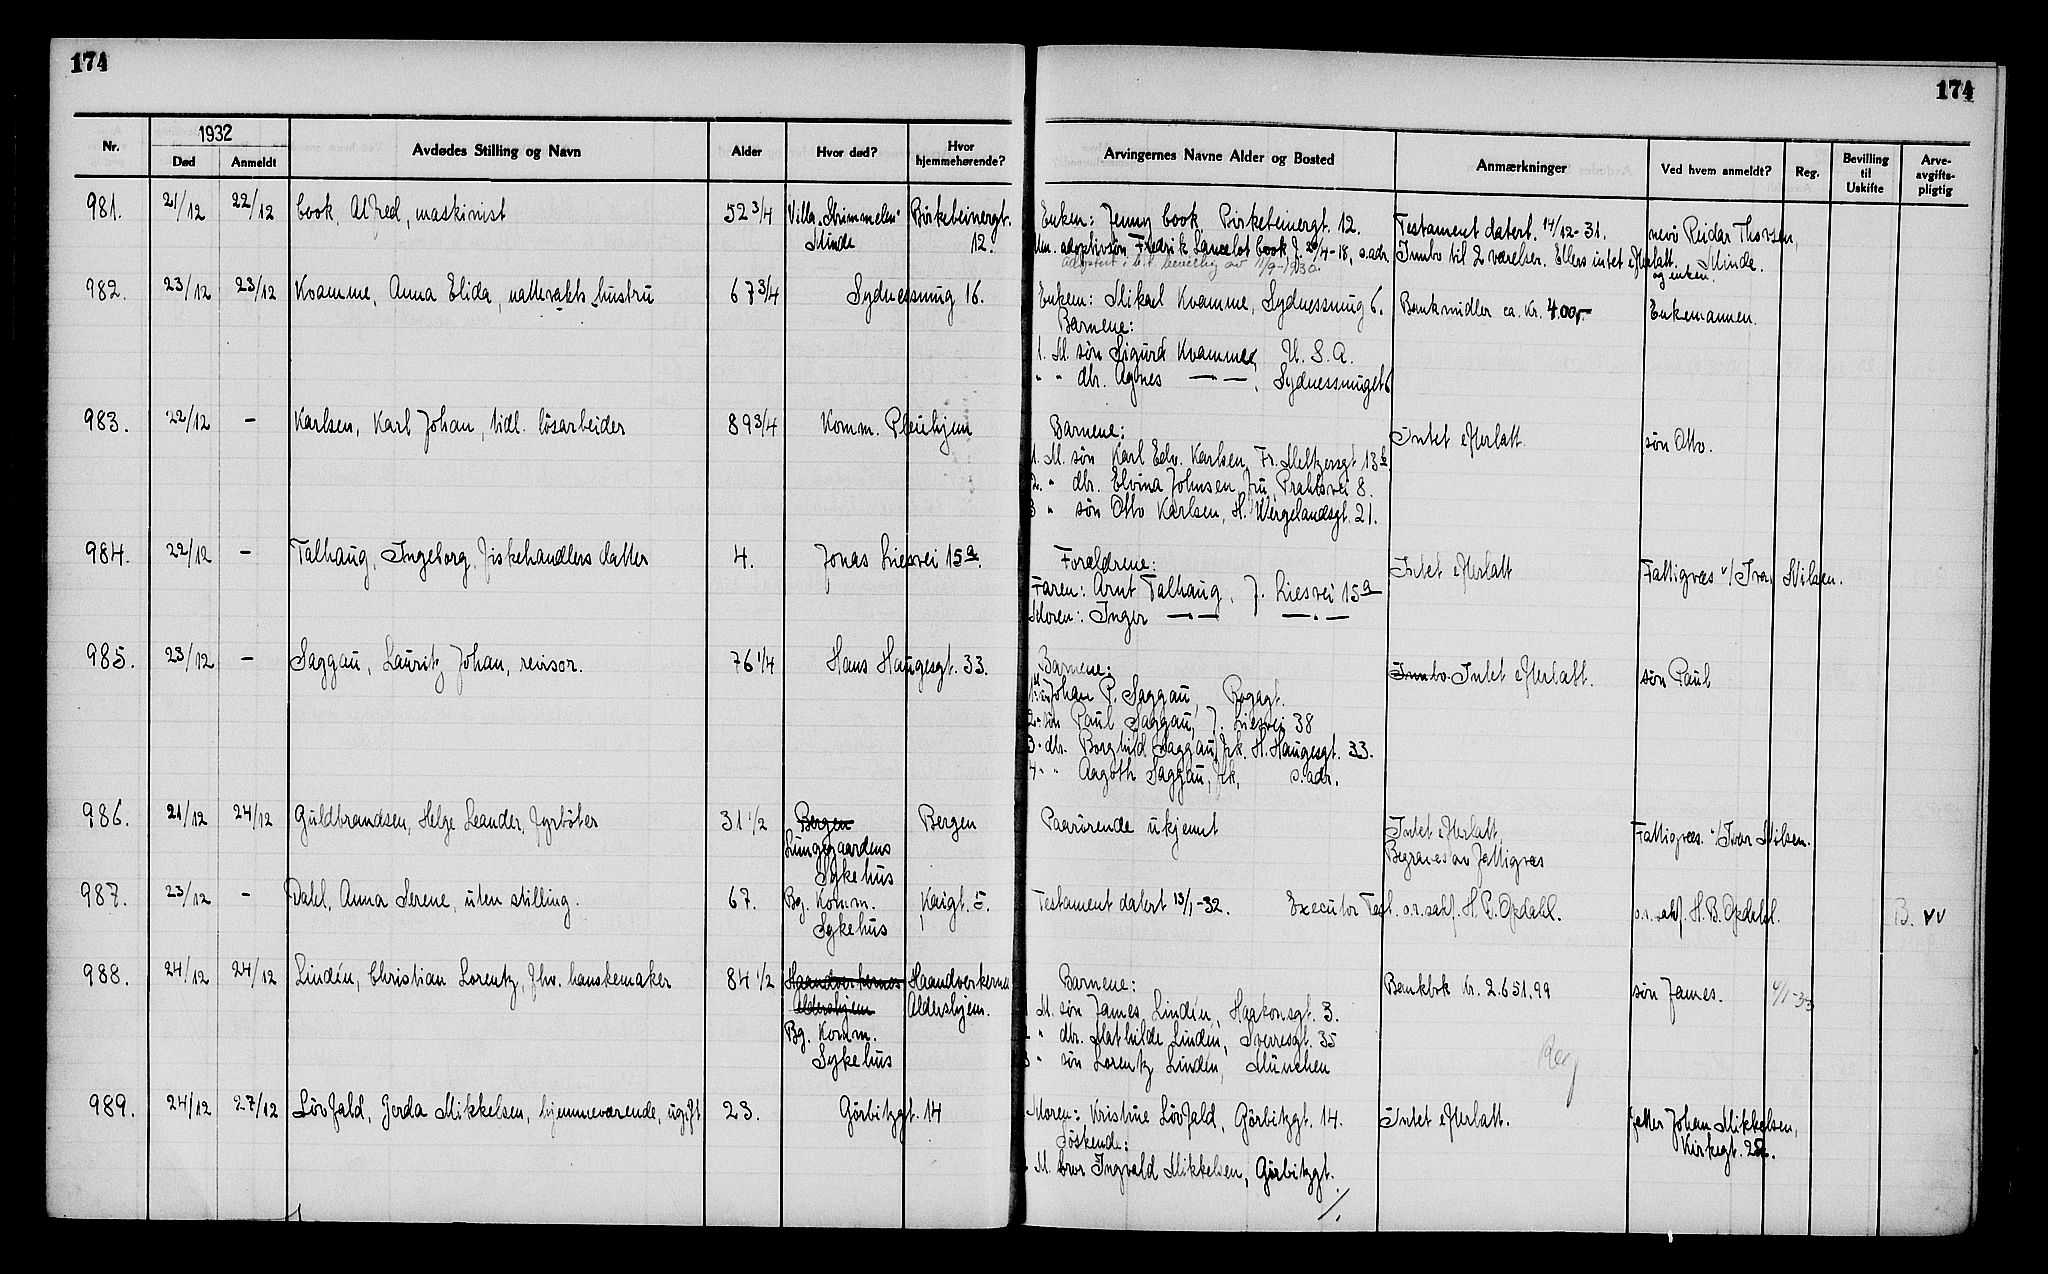 174
174
1932
Nr. Død Anmeldt Avdødes Stilling og Navn Alder Hvor død? Hvor hjemmehørende? Arvingernes Navne Alder og Bosted Anmærkninger Ved hvem anmeldt? Reg. Bevilling til Uskifte Arve-avgifts-pligtig
981. 21/12 22/12 Cook, Alfred, maskinist 52 3/4 Villa „Strimmelen" Birkebeinergt. Enken: Jenny Cook, Birkebeinergt. 12. Testament datert. 14/12-31. nevø Reidar Thorsen,
Minde 12. Um. adoptivsøn Fredrik Lancelot Cook f. 20/4-18, s.adr. Innbo til 2 værelser. Ellers intet efterlatt. Minde.
adoptert i h.t. bevilling av 11/9-1930. og enken.
982. 23/12 23/12 Kvamme, Anna Elida, nattevakts hustru 67 3/4 Sydnessmug 16. Enkem: Mikael Kvamme, Sydnessmug 6. Bankmidler ca. Kr. 400,- Enkemannen.
Barnene:
1. M. søn Sigurd Kvamme, U. S. A.
" " dtr. Agnes — " —, Sydnessmuget 6
983. 22/12 - Karlsen, Karl Johan, tidl. løsarbeider 89 3/4 Komm. Pleiehjem Barnene: Intet efterlatt. søn Otto.
1. M. søn Karl Edv. Karlsen, Fr. Meltzersgt 13 b
2. " dtr. Elvina Johnsen, fru, Prahlsvei 8.
3 " søn Otto Karlsen, H. Wergelandsgt. 21.
984. 22/12 - Talhaug, Ingeborg, fiskehandlers datter 4. Jonas Liesvei 15 a. Forældrene: Intet efterlatt Fattigvæs v/ Ivar Nilsen.
Faren: Arnt Talhaug, J. Liesvei 15 a
Moren: Inger — " — — " —
985. 23/12 - Saggau, Lauritz Johan, revisor. 76 1/4 Hans Haugesgt. 33. Barnene: Innbo. Intet efterlatt. søn Paul
1. M. søn Johan P. Saggau,
2 " søn Paul Saggau, J. Liesvei 38
3 " dtr. Borghild Saggau, frk. H. Haugesgt. 33.
4 " " Aagoth Saggau, frk, s. adr.
986. 21/12 24/12 Guldbrandsen, Helge Leander, fyrbøter 31 1/2 Bergen Bergen Paarørende ukjennt Intet efterlatt, Fattigvæs. v/ Ivar Nilsen.
Lungegaardens Begraves av fattigvæs
Sykehus
987. 23/12 - Dahl, Anna Serene, uten stilling. 67. Bg. Komm. Kaigt. 5. Testament datert 13/1-32. Executor Test. o.r.sakf. H. B. Opdahl. o.r.sakf. H. B. Opdahl. B. vv
Sykehus
988. 24/12 24/12 Lindén, Christian Lorentz, fhv. hanskemaker 84 1/2 Haandverkernes Haandverkernes Barnene: Bankbok kr. 2.651.99 søn James. 4/1-33
Aldershjem Aldershjem. 1 M. søn James Lindén, Haakonsgt. 3.
Bg. Komm. " dtr. Mathilde Lindén, Sverresgt. 35
Sykehus 3 " søn Lorentz Lindén, München Reg
989. 24/12 27/12 Løvfald, Gerda Mikkelsen, hjemmeværende, ugift 23. Gørbitzgt. 14 Moren: Kristine Løvfald, Gørbitzgt. 14. Intet efterlatt. fetter Johan Mikkelsen,
Søskende: Kirkegt.
M. bror Ingvald Mikkelsen, Gørbitzgt.